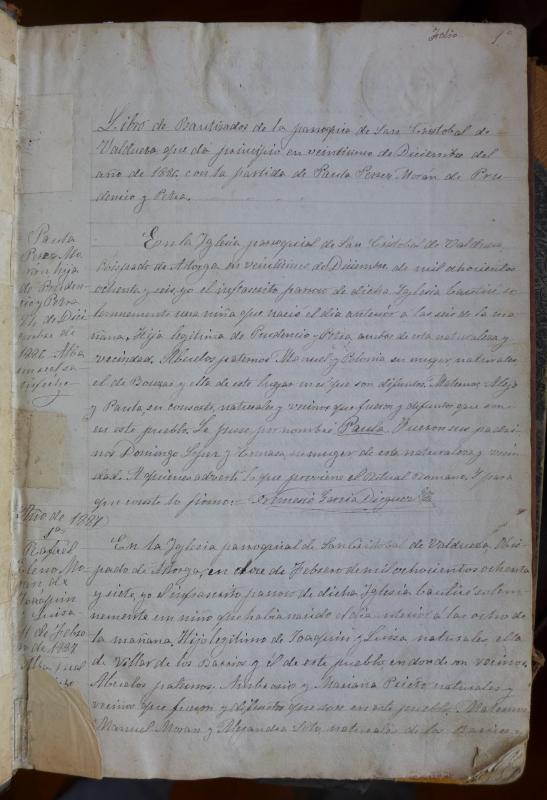 Folio 1º
Libro de Bautizados de la parroquia de San Cristobal de
Valdueza que da principio en veintiuno de Diciembre del
año de 1886, con la partida de Paula Perez Morán de Pru-
dencio y Petra.
Paula
Perez Mo-
rán hija
de Pruden-
cio y Petra
En la Iglesia parroquial de San Cristobal de Valdueza,
Obispado de Astorga, en veintiuno de Diciembre de mil ochocientos
ochenta y seis, yo el infrascrito parroco de dicha Iglesia bauticé so-
lemnemente una niña que nació el dia anterior a las seis de la ma-
ñana. Hija legitima de Prudencio y Petra ambos de esta naturaleza y
vecindad. Abuelos paternos Manuel y Polonia su muger, naturales
el de Bouzas y ella de este lugar en el que son difuntos. Maternos Alejo
y Paula, su consorte, naturales y vecinos que fueron y difuntos que son
en este pueblo. Se puso por nombre Paula. Fueron sus padri-
nos Domingo y Tomasa su muger de esta naturaleza y vecin-
dad. A quienes advertí lo que previene el Ritual Romano. Y para
que conste lo firmo= Nemesio García
Año de 1887
1ª
Rafael
Mo-
ran de
Joaquin
y Luisa
11 de Febre-
ro de 1887
En la Iglesia parroquial de San Cristobal de Valdueza Obis-
pado de Astorga, en once de Febrero de mil ochocientos ochenta
y siete, yo el infrascrito parroco de dicha Iglesia bauticé solem-
nemente un niño que habia nacido el dia anterior á las ocho de
la mañana. Hijo legitimo de Joaquin y Luisa naturales ella
de Villar de los Barrios y él de este pueblo, en donde son vecinos.
Abuelos paternos, Ambrosio y Mariana Prieto naturales y
vecinos que fueron y difuntos que son en este pueblo. Maternos
Manuel Moran y Alejandra naturales de los Barrios y